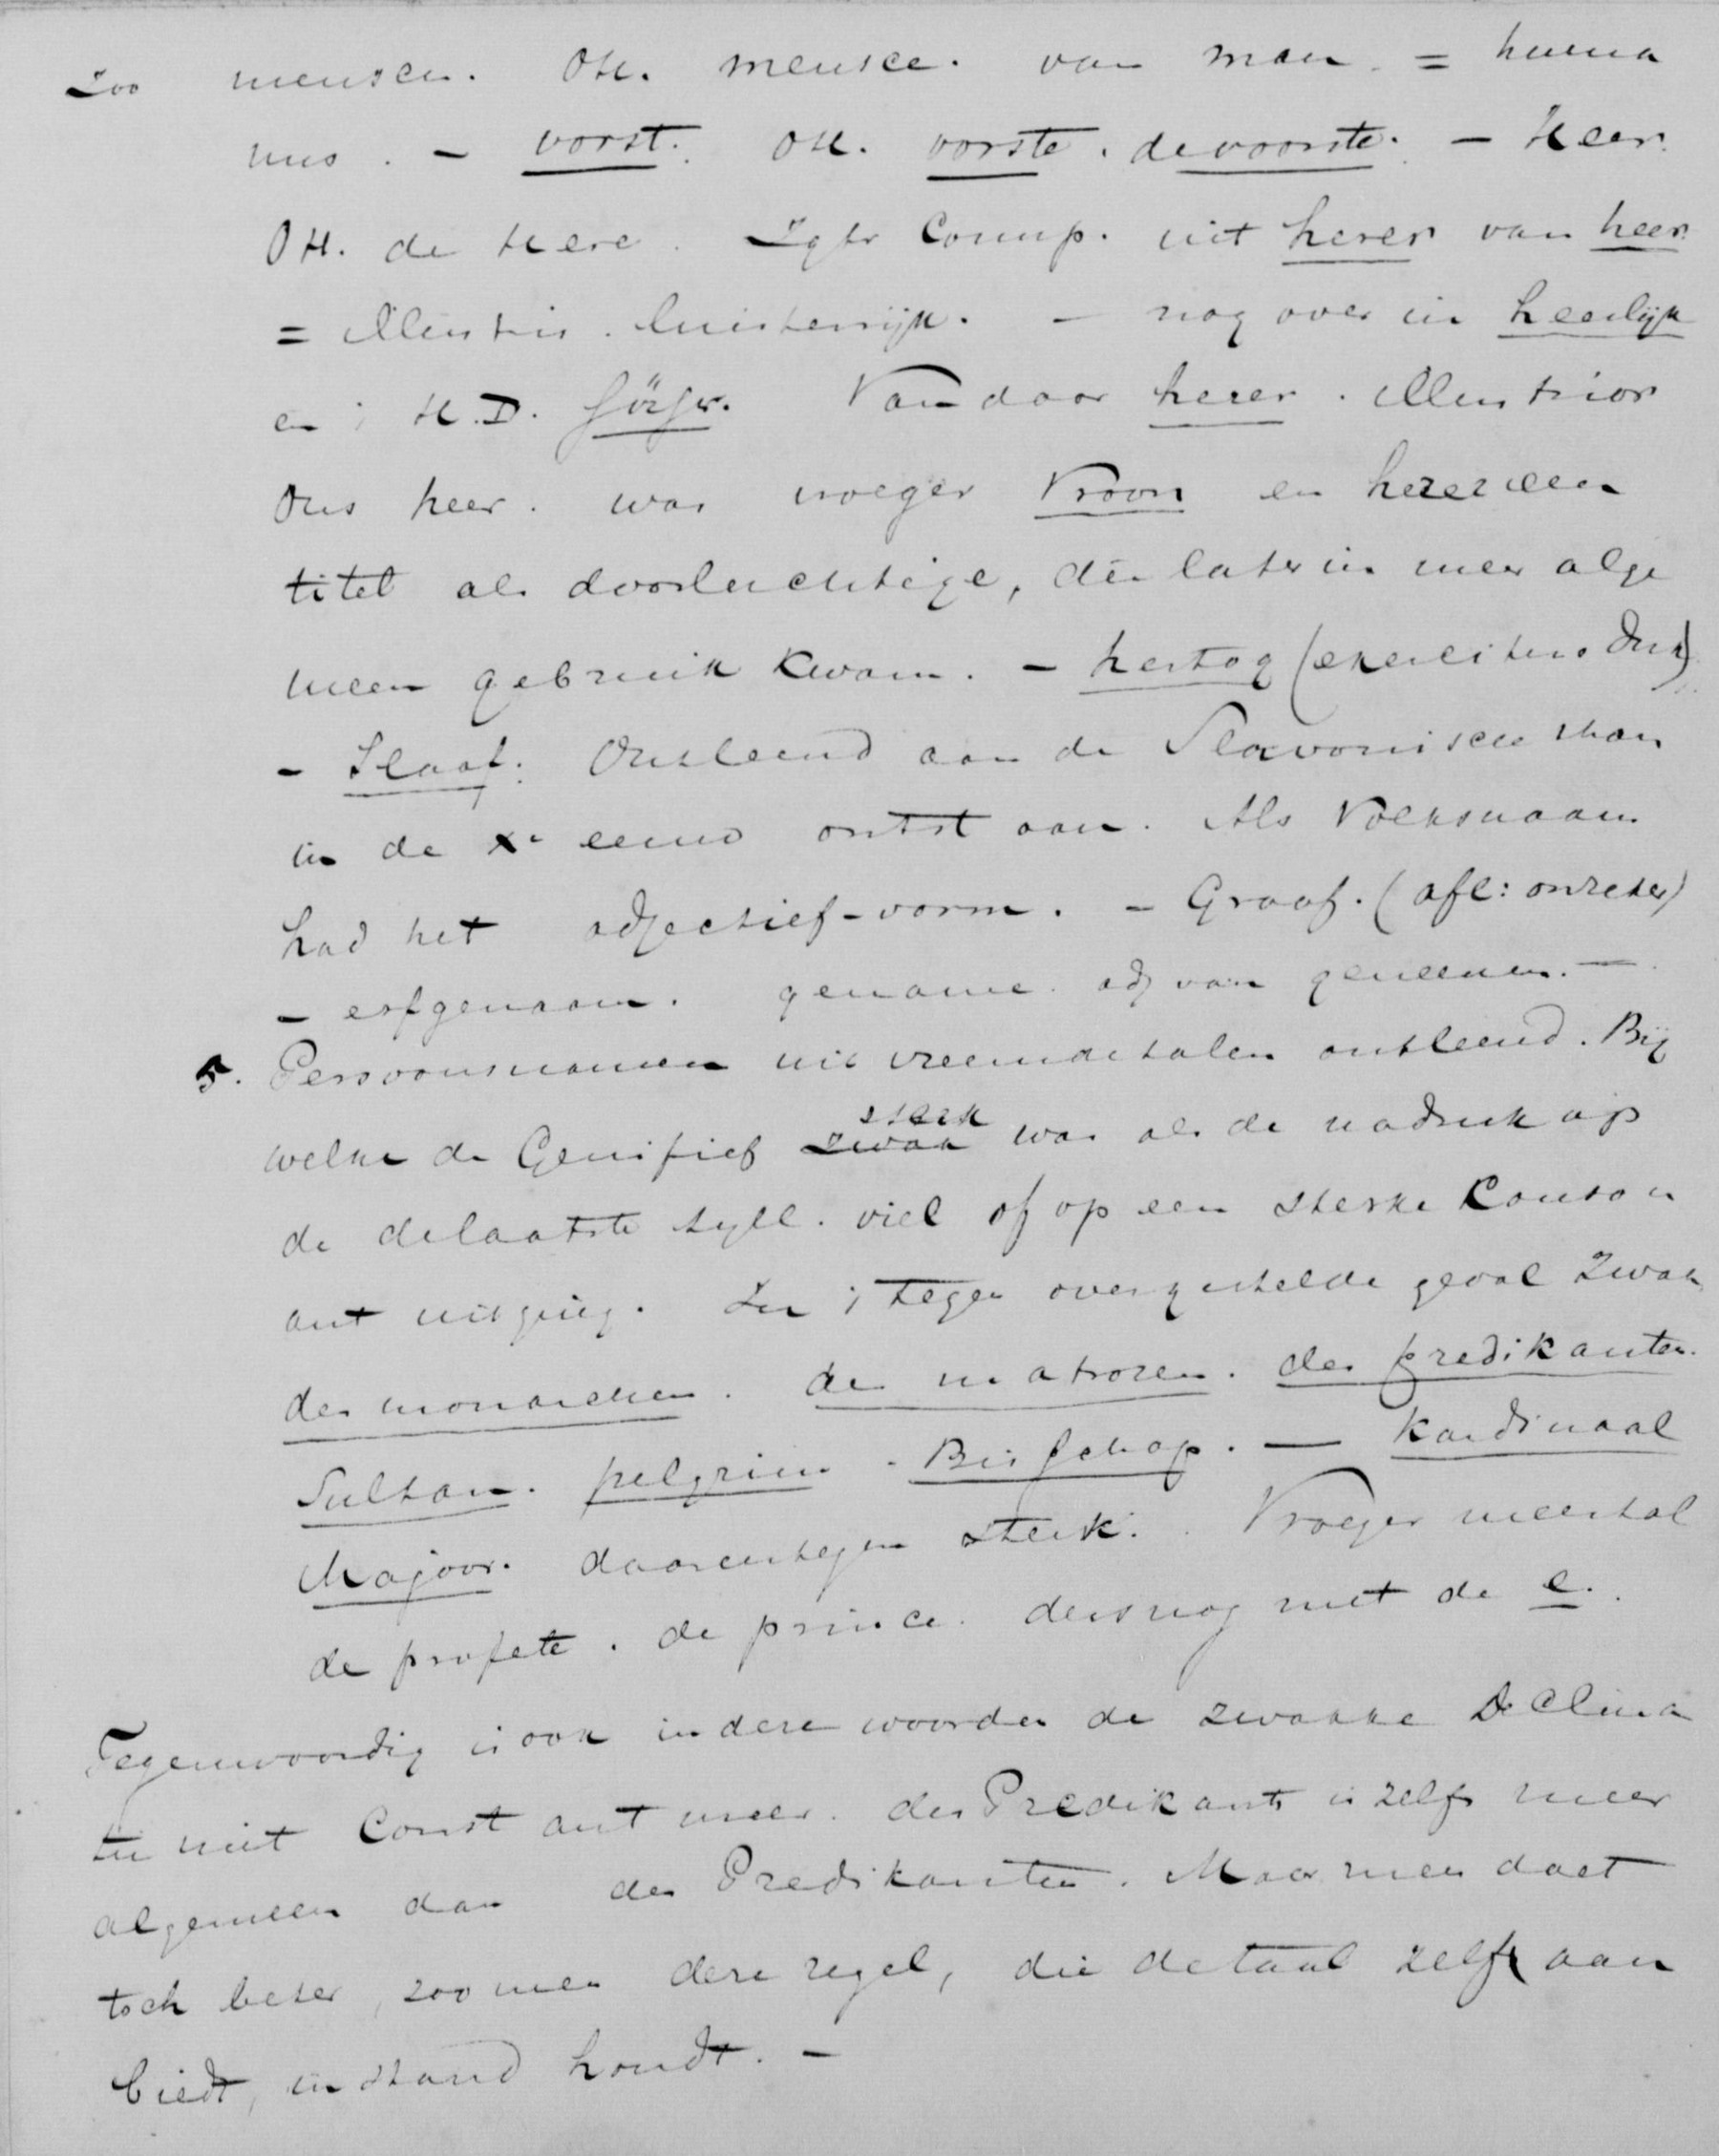 Zoo mensch. OH. mensce. van man. = huma
nus. - vorst. OH. vorste. de voorste. - Heer.
OH. de Here. Zgtr Comp. uit herer van heer
= illustris. luisterrijk. - nog over in heerlijk
en i H.D. Vandaar herer. illustrior
Ons heer. was vroeger Vroon en herer een
titel als doorluchtige, die later in meer alge
meen gebruik kwam. - hertog (exercitus dux)
- Slaaf. Ontleend aan de Slavonische stam
in de Xe eeuw ontstaan. Als Volksnaam
had het adjectief-vorm. - Graaf. (afl: onzeker)
- erfgenaam. gename. adj van geneemen. -
5. Persoonsnamen uit vreemde talen ontleend. Bij
welke de Genitief zwak sterk was als de nadruk op
de delaatste syll. viel of op een sterke Conson
ant uitging. In 't tegenovergestelde geval zwak
des monarchen. des matrozen. des predikanten.
Sultan. pelgrim. Bisschop. - Kardinaal
Majoor. daarentegen sterk. Vroeger meestal
de profete. de prince. dus nog met de e.
Tegenwoordig is ook in deze woorden de zwakke Declina
tie niet Constant meer. des Predikants is zelfs meer
algemeen dan des Predikanten. Maar men doet
toch beter, zoo men deze regel, die de taal zelf aan
biedt, in stand houdt. -